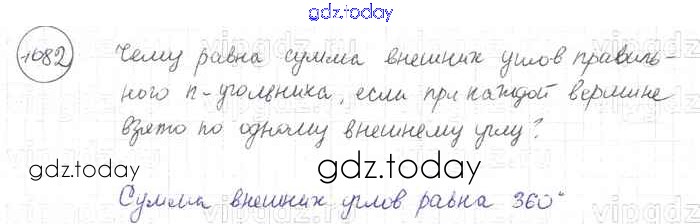 gdz.today
1082 Чему равна сумма внешних углов правиль-
ного n-угольника, если при каждой вершине
взято по одному внешнему углу?
gdz.today
gdz.today
Сумма внешних углов равна 360°